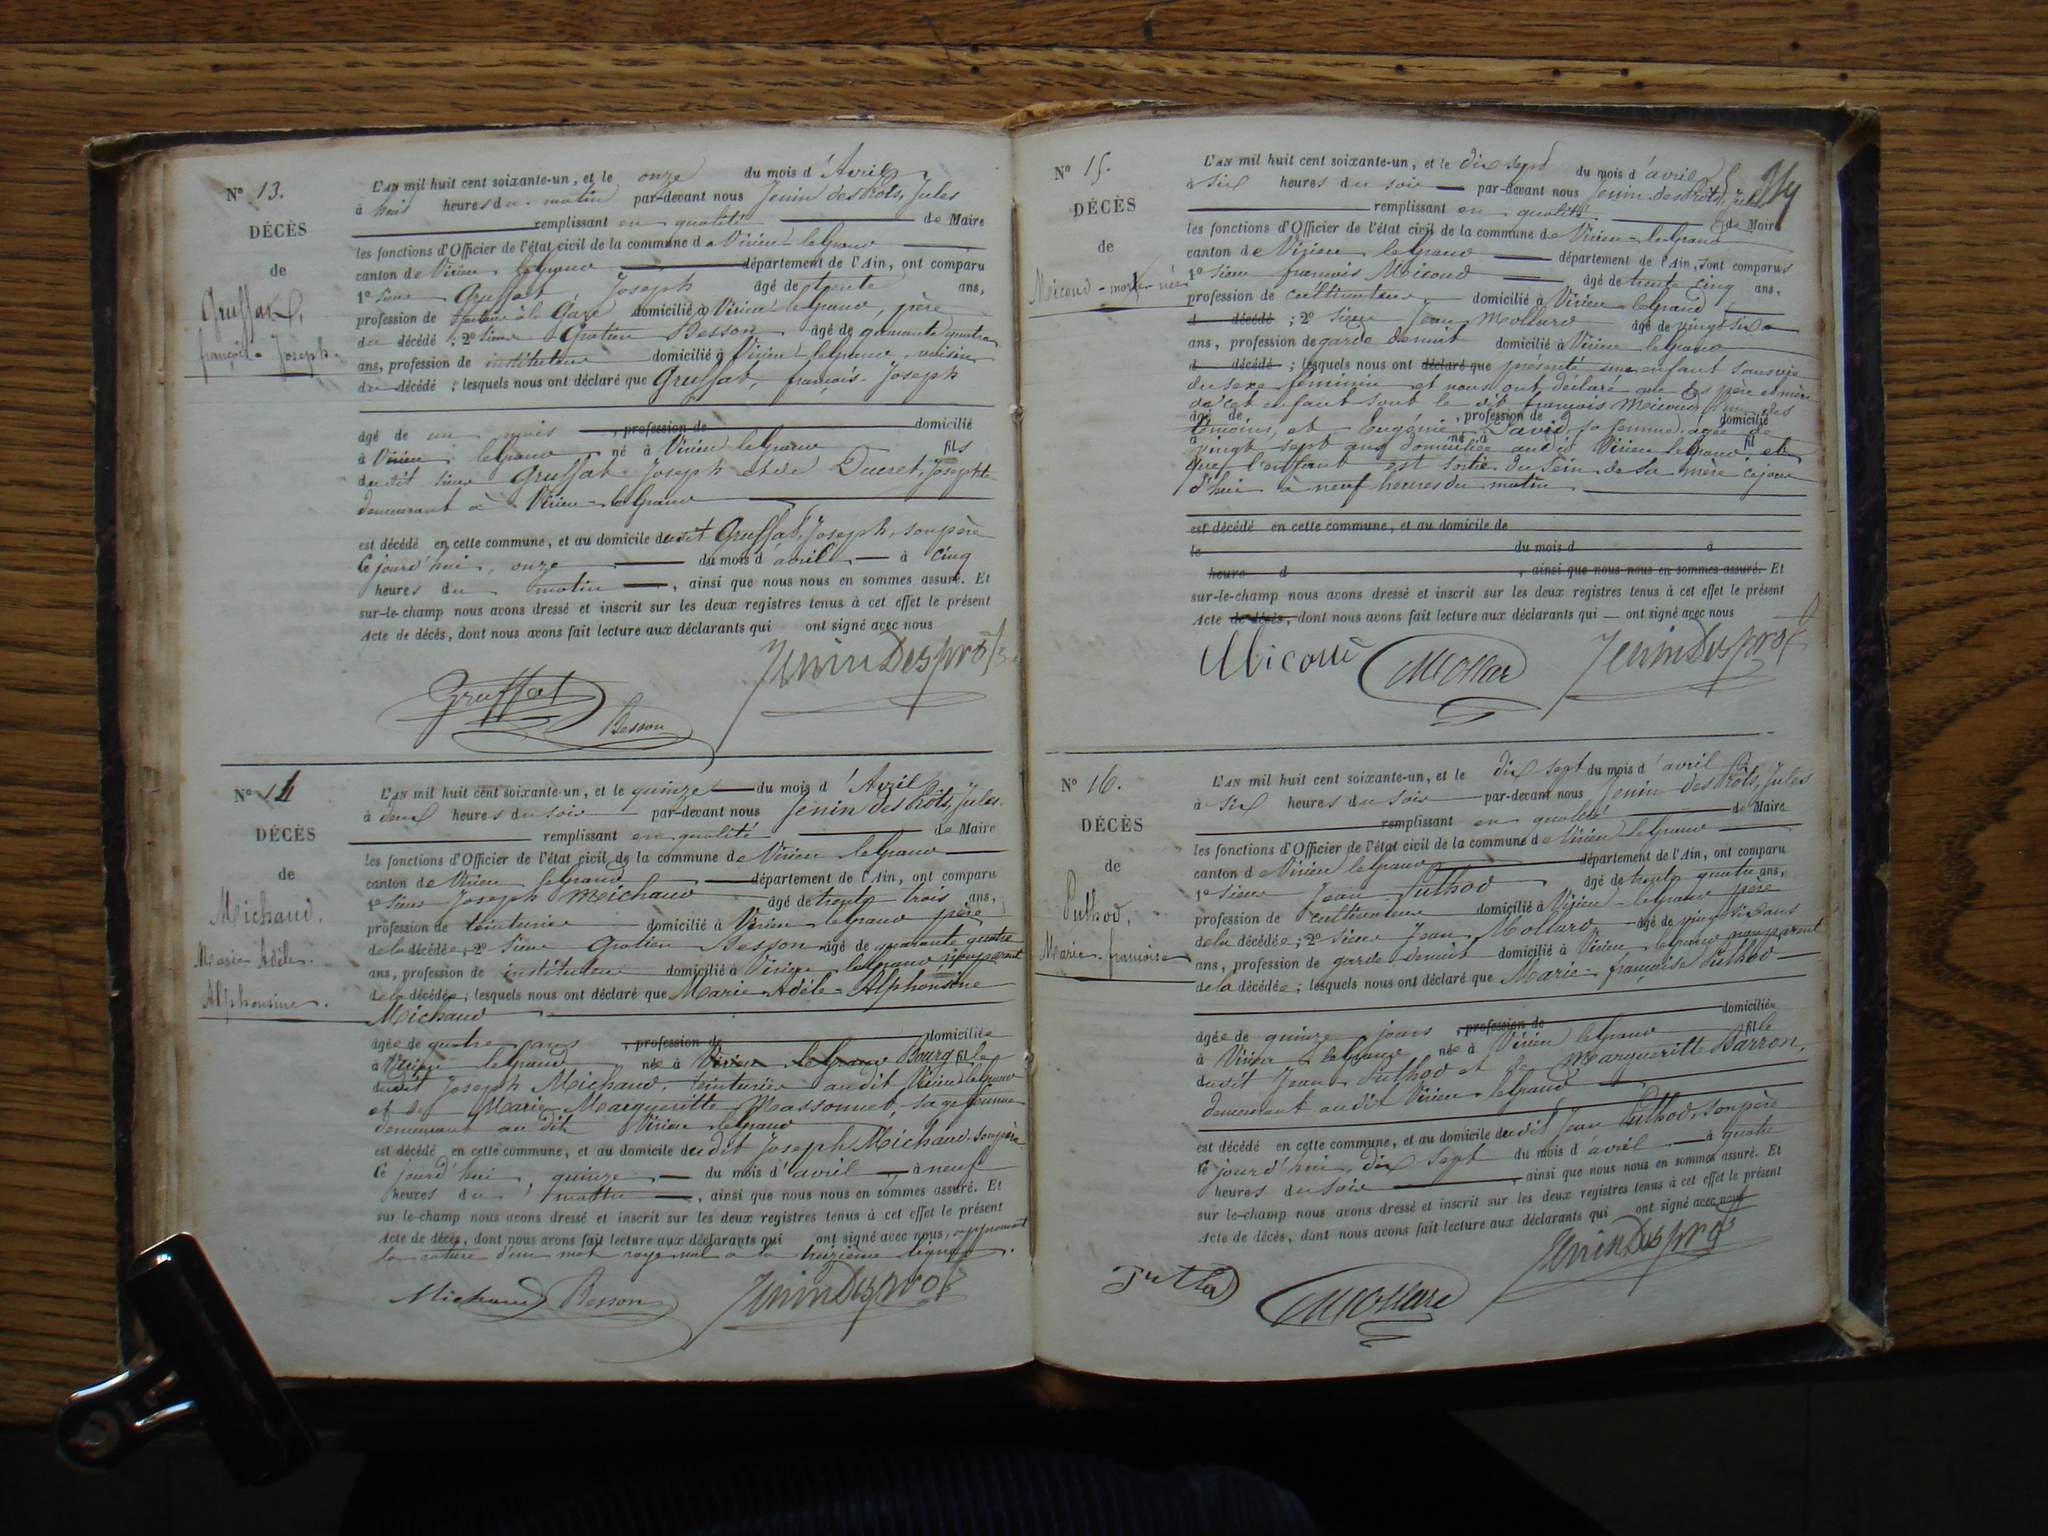 N° 13.
DÉCÈS
de
Gruffat,
françois-Joseph.
L'AN mil huit cent soixante-un, et le onze du mois d'Avril
à huit heures du matin par-devant nous Jenin des Prôts, Jules
remplissant en qualité de Maire
les fonctions d'Officier de l'état civil de la commune de Virieu-legrand
canton de Virieu legrand département de l'Ain, ont comparu
1° sieur Gruffat Joseph âgé de trente ans,
profession de à la Gare domicilié à Virieu-legrand, père
du décédé ; 2° sieur Gratien Besson âgé de quarante quatre
ans, profession de instituteur domicilié à Virieu-legrand, voisin
du décédé ; lesquels nous ont déclaré que Gruffat, françois-Joseph
âgé de un mois , profession de domicilié
à Virieu legrand né à Virieu legrand fils
dudit sieur Gruffat Joseph et de Ducret, Josephte
demeurant à Virieu-legrand
est décédé en cette commune, et au domicile dudit Gruffat, Joseph, son père
ce jourd'hui, onze du mois d'avril à cinq
heures du matin , ainsi que nous nous en sommes assuré. Et
sur-le-champ nous avons dressé et inscrit sur les deux registres tenus à cet effet le présent
Acte de décès, dont nous avons fait lecture aux déclarants qui ont signé avec nous
Gruffat Besson JeninDesprôts
N° 14
DÉCÈS
de
Michaud,
Marie Adèle.
Alphonsine.
L'AN mil huit cent soixante-un, et le quinze du mois d'Avril
à deux heures du soir par-devant nous Jenin des Prôts, Jules
remplissant en qualité de Maire
les fonctions d'Officier de l'état civil de la commune de Virieu legrand
canton de Virieu legrand département de l'Ain, ont comparu
1° sieur Joseph Michaud âgé de trente trois ans,
profession de teinturier domicilié à Virieu legrand père
de la décédée ; 2° sieur Gratien Besson âgé de quarante quatre
ans, profession de instituteur domicilié à Virieu legrand non parent
de la décédée ; lesquels nous ont déclaré que Marie-Adèle-Alphonsine
Michaud
âgée de quatre ans , profession de domiciliée
à Virieu legrand née à Virieu legrand Bourg fille
dudit Joseph Michaud, teinturier audit Virieu legrand
et de Marie Margueritte Massonnet, sage femme
demeurant au dit Virieu legrand
est décédé en cette commune, et au domicile dudit Joseph Michaud, son père
ce jourd'hui, quinze du mois d'avril à neuf
heures du matin , ainsi que nous nous en sommes assuré. Et
sur le-champ nous avons dressé et inscrit sur les deux registres tenus à cet effet le présent
Acte de décès, dont nous avons fait lecture aux déclarants qui ont signé avec nous, approuvant
la rature d'un mot rayé nul à la treizième ligne.
Michaud Besson JeninDesprôts
N° 15.
DÉCÈS
de
Micoud-mort-née
L'AN mil huit cent soixante-un, et le dix sept du mois d'avril
à six heures du soir par-devant nous Jenin des Prôts, Jules
remplissant en qualité de Maire
les fonctions d'Officier de l'état civil de la commune de Virieu-legrand
canton de Virieu legrand département de l'Ain, sont comparus
1° sieur françois Micoud âgé de trente cinq ans,
profession de cultivateur domicilié à Virieu-legrand
d décédé ; 2° sieur Jean Mollard âgé de vingt six
ans, profession de garde de nuit domicilié à Virieu legrand
d décédé ; lesquels nous ont déclaré que présenté une enfant sans vie
du sexe féminin et nous ont déclaré que les père et mère
de cet enfant sont le dit françois Micoud, l'un des
âgé de , profession de domicilié
témoins, et Eugénie David, sa femme, âgée de
à né à fil
vingt sept ans domiciliée audit Virieu legrand et
que l'enfant est sortie du sein de sa mère ce jour
d'hui à neuf heures du matin
est décédé en cette commune, et au domicile de
le du mois d à
heure d , ainsi que nous nous en sommes assuré. Et
sur-le-champ nous avons dressé et inscrit sur les deux registres tenus à cet effet le présent
Acte de décès, dont nous avons fait lecture aux déclarants qui — ont signé avec nous
Micoud Mollar JeninDesprôts
N° 16.
DÉCÈS
de
Puthod,
Marie-françoise
L'AN mil huit cent soixante-un, et le dix sept du mois d'avril
à six heures du soir par-devant nous Jenin des Prôts, Jules
remplissant en qualité de Maire
les fonctions d'Officier de l'état civil de la commune de Virieu legrand
canton de Virieu legrand département de l'Ain, ont comparu
1° sieur Jean Puthod âgé de trente quatre ans,
profession de cultivateur domicilié à Virieu-legrand père
de la décédée ; 2° sieur Jean Mollard âgé de vingt six ans
ans, profession de garde de nuit domicilié à Virieu legrand non parent
de la décédée ; lesquels nous ont déclaré que Marie-françoise Puthod
âgée de quinze jours , profession de domiciliée
à Virieu legrand née à Virieu legrand fille
dudit Jean Puthod et de Margueritte Barron,
demeurant audit Virieu legrand
est décédé en cette commune, et au domicile dudit Jean Puthod, son père
ce jourd'hui, dix sept du mois d'avril à quatre
heures du soir , ainsi que nous nous en sommes assuré. Et
sur-le-champ nous avons dressé et inscrit sur les deux registres tenus à cet effet le présent
Acte de décès, dont nous avons fait lecture aux déclarants qui ont signé avec nous
Puthod Mollard JeninDesprôts